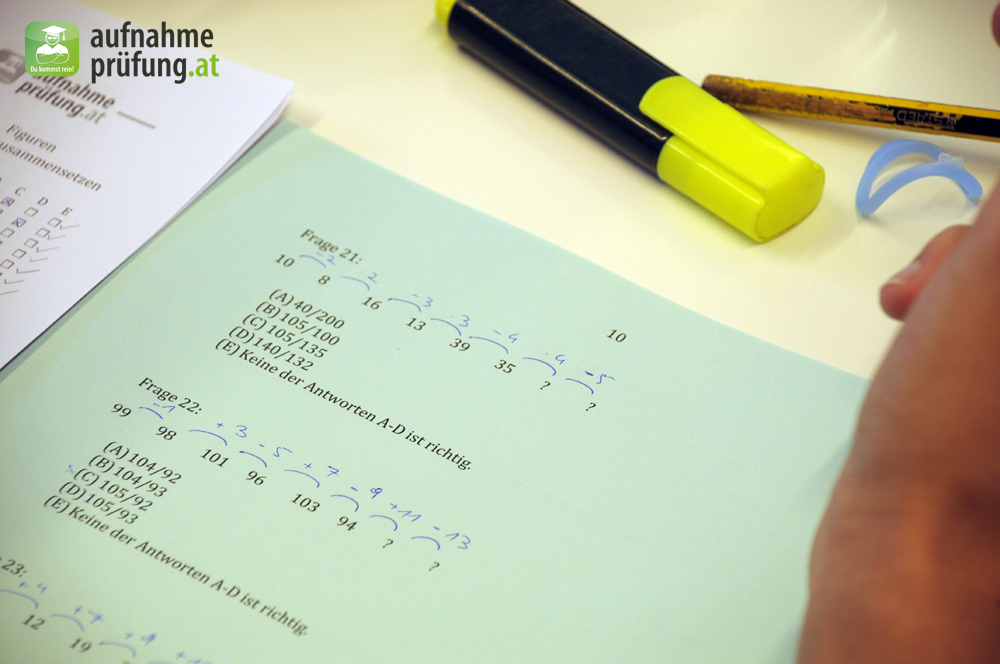 aufnahme
prüfung.at
Du kommst rein!
aufnahme
prüfung.at
Figuren
zusammensetzen
C D E
Frage 21:
-2 ·2 -3 ·3 -4 ·4 -5
10 8 16 13 39 35 ? ?
(A) 40/200
(B) 105/100
(C) 105/135
(D) 140/132
(E) Keine der Antworten A-D ist richtig.
10
Frage 22:
-1 +3 -5 +7 -9 +11 -13
99 98 101 96 103 94 ? ?
(A) 104/92
(B) 104/93
(C) 105/92
(D) 105/93
(E) Keine der Antworten A-D ist richtig.
23:
+4
12 19